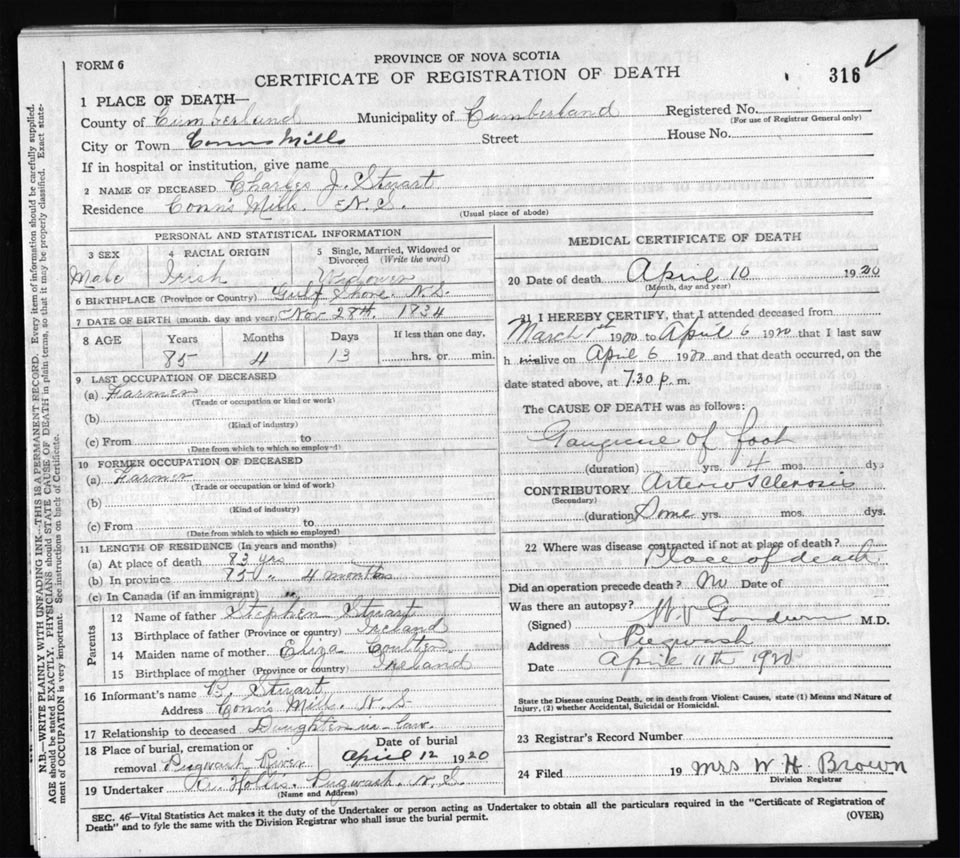 FORM 6
PROVINCE OF NOVA SCOTIA
CERTIFICATE OF REGISTRATION OF DEATH
316
1 PLACE OF DEATH—
County of Cumberland Municipality of Cumberland Registered No.
(For use of Registrar General only)
City or Town Conns Mills Street House No.
If in hospital or institution, give name
2 NAME OF DECEASED Charles J. Stuart
Residence Conn's Mills. N.S.
(Usual place of abode)
PERSONAL AND STATISTICAL INFORMATION
3 SEX 4 RACIAL ORIGIN 5 Single, Married, Widowed or Divorced (Write the word)
Male Irish Widower
6 BIRTHPLACE (Province or Country) Gulf Shore. N.S.
7 DATE OF BIRTH (month. day and year) Nov 28th. 1834
8 AGE Years Months Days If less than one day,
85 4 13 hrs. or min.
9 LAST OCCUPATION OF DECEASED
(a) Farmer
(Trade or occupation or kind or work)
(b)
(Kind of industry)
(c) From to
(Date from which to which employed)
10 FORMER OCCUPATION OF DECEASED
(a) Farmer
(Trade or occupation or kind of work)
(b)
(Kind of industry)
(c) From to
(Date from which to which so employed)
11 LENGTH OF RESIDENCE (In years and months)
(a) At place of death 83 yrs
(b) In province 85 " 4 months
(c) In Canada (if an immigrant) "
Parents
12 Name of father Stephen Stuart
13 Birthplace of father (Province or country) Ireland
14 Maiden name of mother Eliza Coulter
15 Birthplace of mother (Province or country) Ireland
16 Informant's name B. Stuart
Address Conns Mills. N.S.
17 Relationship to deceased Daughter-in-law.
18 Place of burial, cremation or Date of burial
removal Pugwash River April 12 1920
19 Undertaker Hollis. Pugwash. N.S.
(Name and Address)
MEDICAL CERTIFICATE OF DEATH
20 Date of death April 10 1920
(Month, day and year)
21 I HEREBY CERTIFY, that I attended deceased from
March 1st 1920 to April 6 1920 that I last saw
h im alive on April 6 1920 and that death occurred, on the
date stated above, at 7.30 p. m.
The CAUSE OF DEATH was as follows:
Gangrene of foot
(duration) yrs. 4 mos. dys.
CONTRIBUTORY Arterio Sclerosis
(Secondary)
(duration) Some yrs. mos. dys.
22 Where was disease contracted if not at place of death?
Place of death
Did an operation precede death? No Date of
Was there an autopsy?
(Signed) M.D.
Address Pugwash
Date April 11th 1920
State the Disease causing Death, or in death from Violent Causes, state (1) Means and Nature of
Injury, (2) whether Accidental, Suicidal or Homicidal.
23 Registrar's Record Number
24 Filed 19 Mrs W. H. Brown
Division Registrar
SEC. 46—Vital Statistics Act makes it the duty of the Undertaker or person acting as Undertaker to obtain all the particulars required in the "Certificate of Registration of
Death" and to fyle the same with the Division Registrar who shall issue the burial permit.
(OVER)
N.B.—WRITE PLAINLY WITH UNFADING INK—THIS IS A PERMANENT RECORD. Every item of information should be carefully supplied.
AGE should be stated EXACTLY. PHYSICIANS should STATE CAUSE OF DEATH in plain terms, so that it may be properly classified. Exact state-
ment of OCCUPATION is very important. See instructions on back of Certificate.